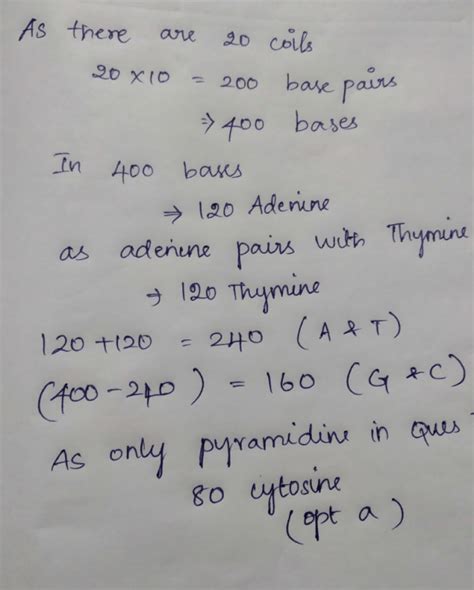 As there are 20 coils
20 × 10 = 200 base pairs
⇒ 400 bases
In 400 bases
⇒ 120 Adenine
as adenine pairs with Thymine
→ 120 Thymine
120 + 120 = 240 (A & T)
(400 - 240) = 160 (G & C)
As only pyramidine in Ques
80 cytosine
(opt a)